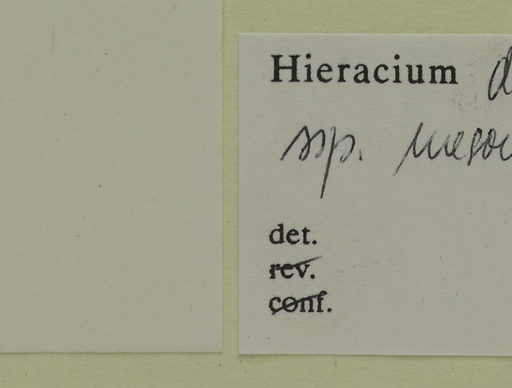 Hieracium
ssp.
det.
rev.
conf.